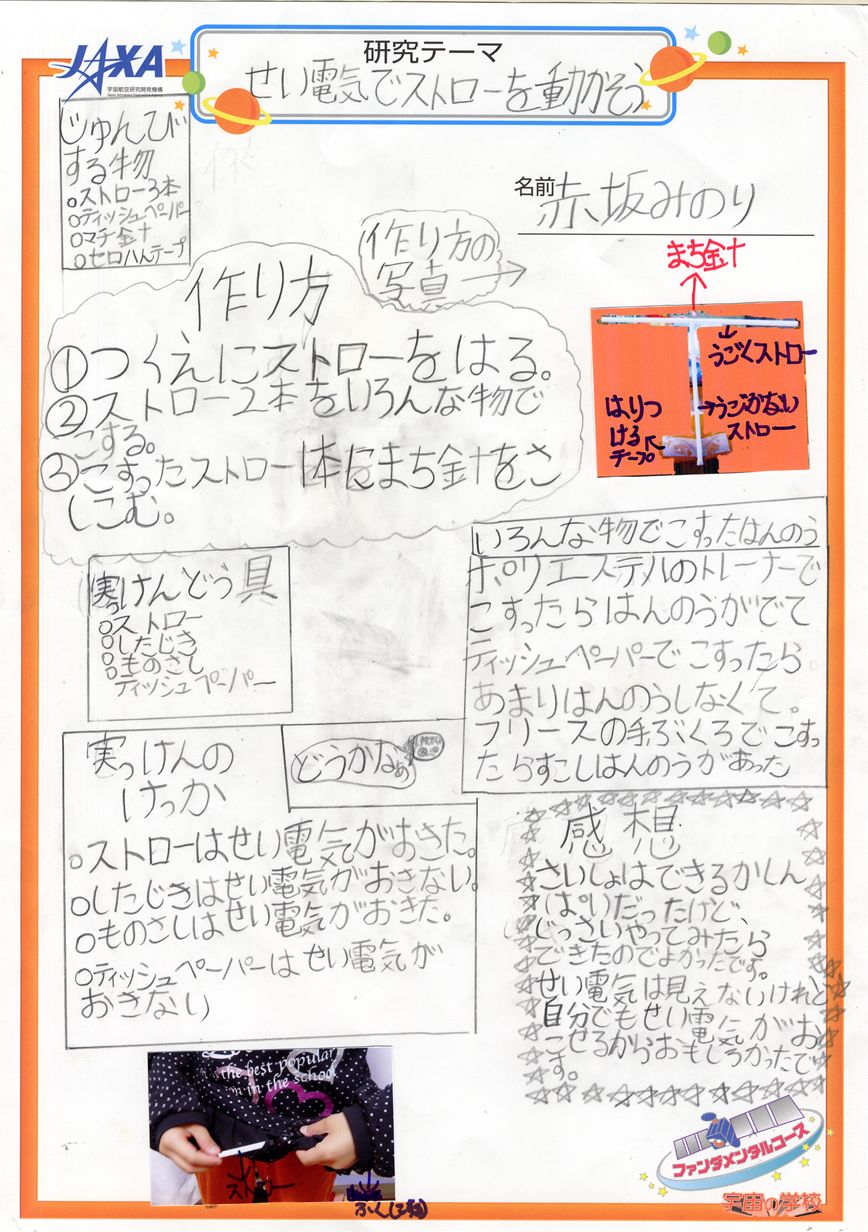 JAXA
宇宙航空研究開発機構
Japan Aerospace Exploration Agency
研究テーマ
せい電気でストローを動かそう
じゅんび
する物
○ストロー3本
○ティッシュペーパー
○マチ金十
○セロハんテープ
名前 赤坂みのり
作り方の
写真→
作り方
①つくえにストローをはる。
②ストロー2本をいろんな物で
こする。
③こすったストロー体にまち金十をさ
しこむ。
まち金十
うごくストロー
うごかない
ストロー
はりつ
ける
テープ
いろんな物でこすったはんのう
ポリエーステルのトレーナーで
こすったらはんのうがでて
ティッシュペーパーでこすったら
あまりはんのうしなくて。
フリースの手ぶくろでこすっ
たらすこしはんのうがあった
実っけんどう具
○ストロー
○したじき
○ものさし
○ティッシュペーパー
どうかなぁ
実っけんの
けっか
○ストローはせい電気がおきた。
○したじきはせい電気がおきない。
○ものさしはせい電気がおきた。
○ティッシュペーパーはせい電気が
おきない
感想
さいしょはできるかしん
ぱいだったけど、
じっさいやってみたら
できたのでよかったです。
せい電気は見えないけれど
自分でもせい電気がお
こせるからおもしろかったで
す。
the best popular
in the school
ストロー
ファンダメンタルコース
宇宙の学校